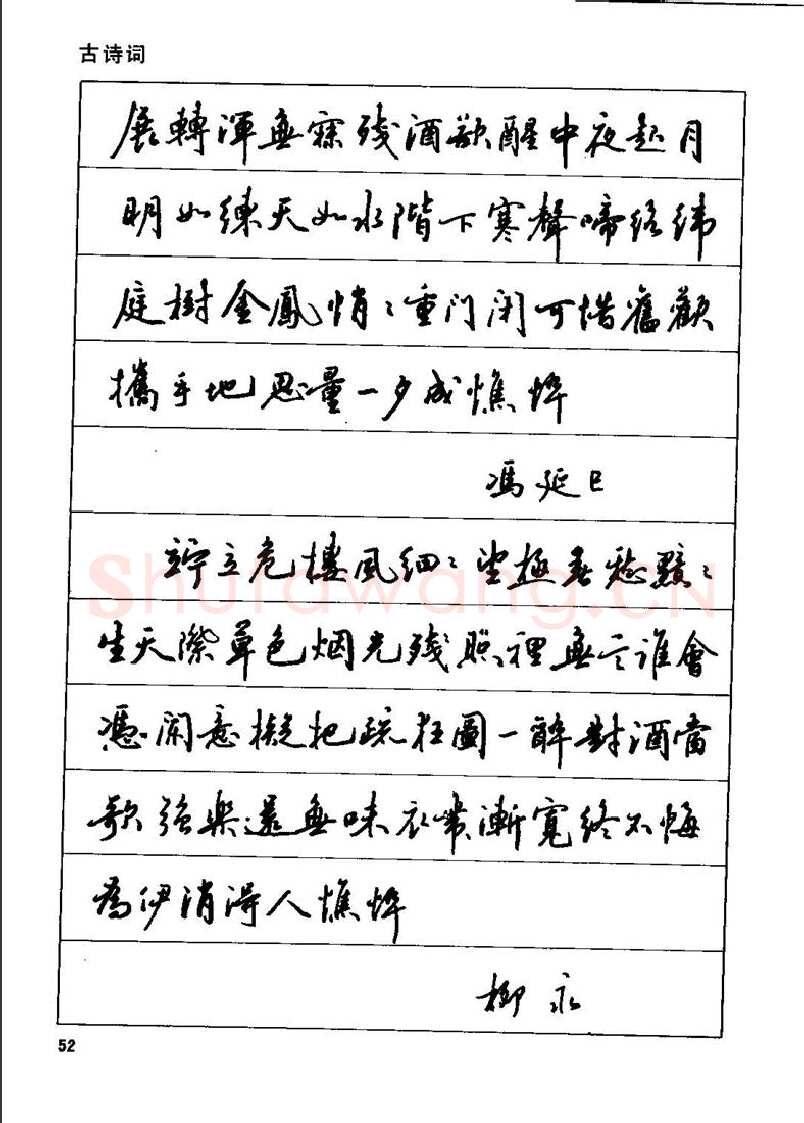 古诗词
展轉渾無寐残酒欲醒中夜起月
明如練天如水階下寒聲啼络纬
庭樹金鳳悄〻重门闭可惜舊歡
攜手地思量一夕成憔悴
馮延巳
竚立危樓風细〻望極春愁黯〻
生天際草色烟光残照裡無言谁會
憑闌意擬把疏狂圖一醉對酒當
歌強樂還無味衣帶漸寬终不悔
為伊消得人憔悴
柳永
shufawang.CN
52